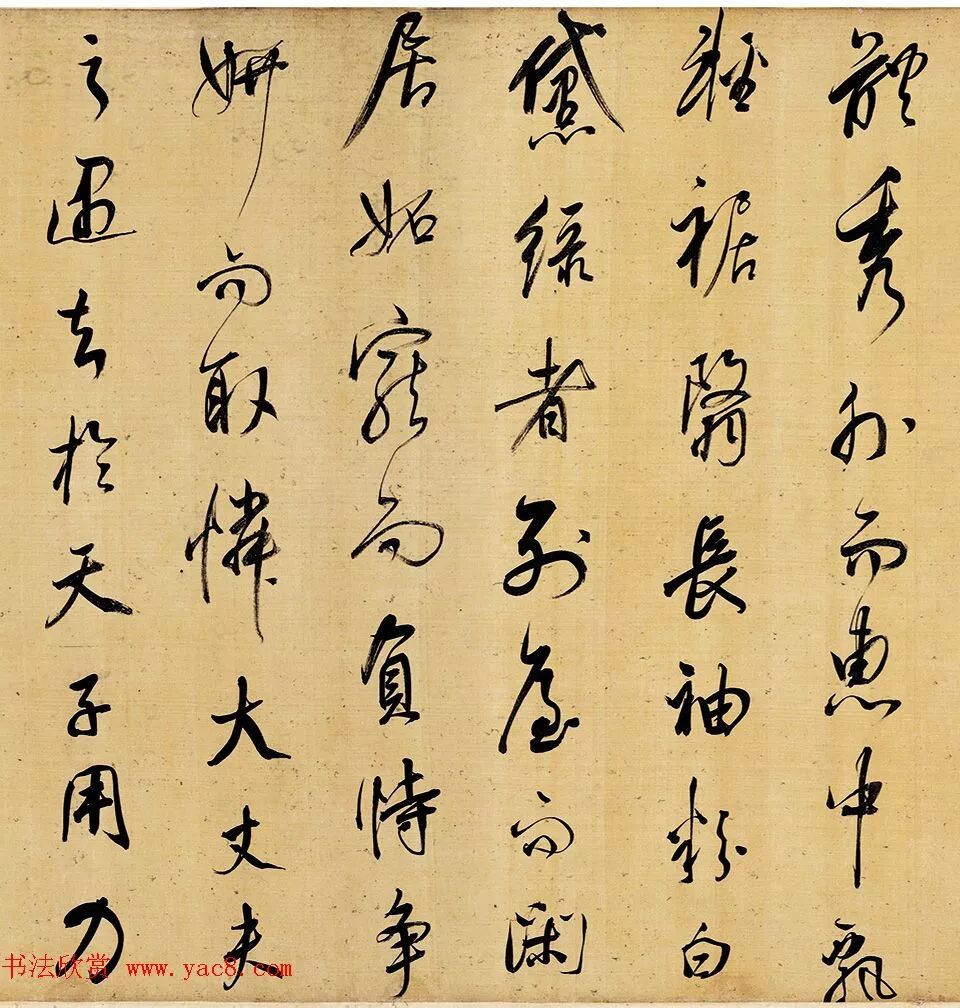 體秀外而惠中飄
輕裾翳長袖粉白
黛綠者列屋而閑
居妬寵而負恃爭
妍而取憐大丈夫
之遇知於天子用力
书法欣赏 www.yac8.com